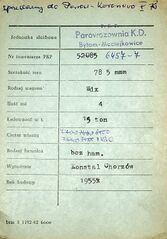 Sprzedany do
P. K. P.
Parowozownia K.D.
Jednostka służbowa
Bytom-Maciejkowice
Nr inwentarza PKP 52085 6457-7
Szerokość toru 785 mmm
Rodzaj wagonu Wdx
Ilość osi 4
Ładowność w t. 15 ton
Ciężar własny
Rodzaj hamulca bez ham.
Wytwórnia Konstal Chorzów
Rok budowy 1955r